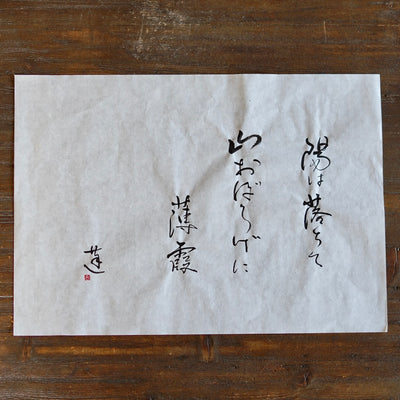 陽は落ちて
山おぼろげに
薄霞
蓮